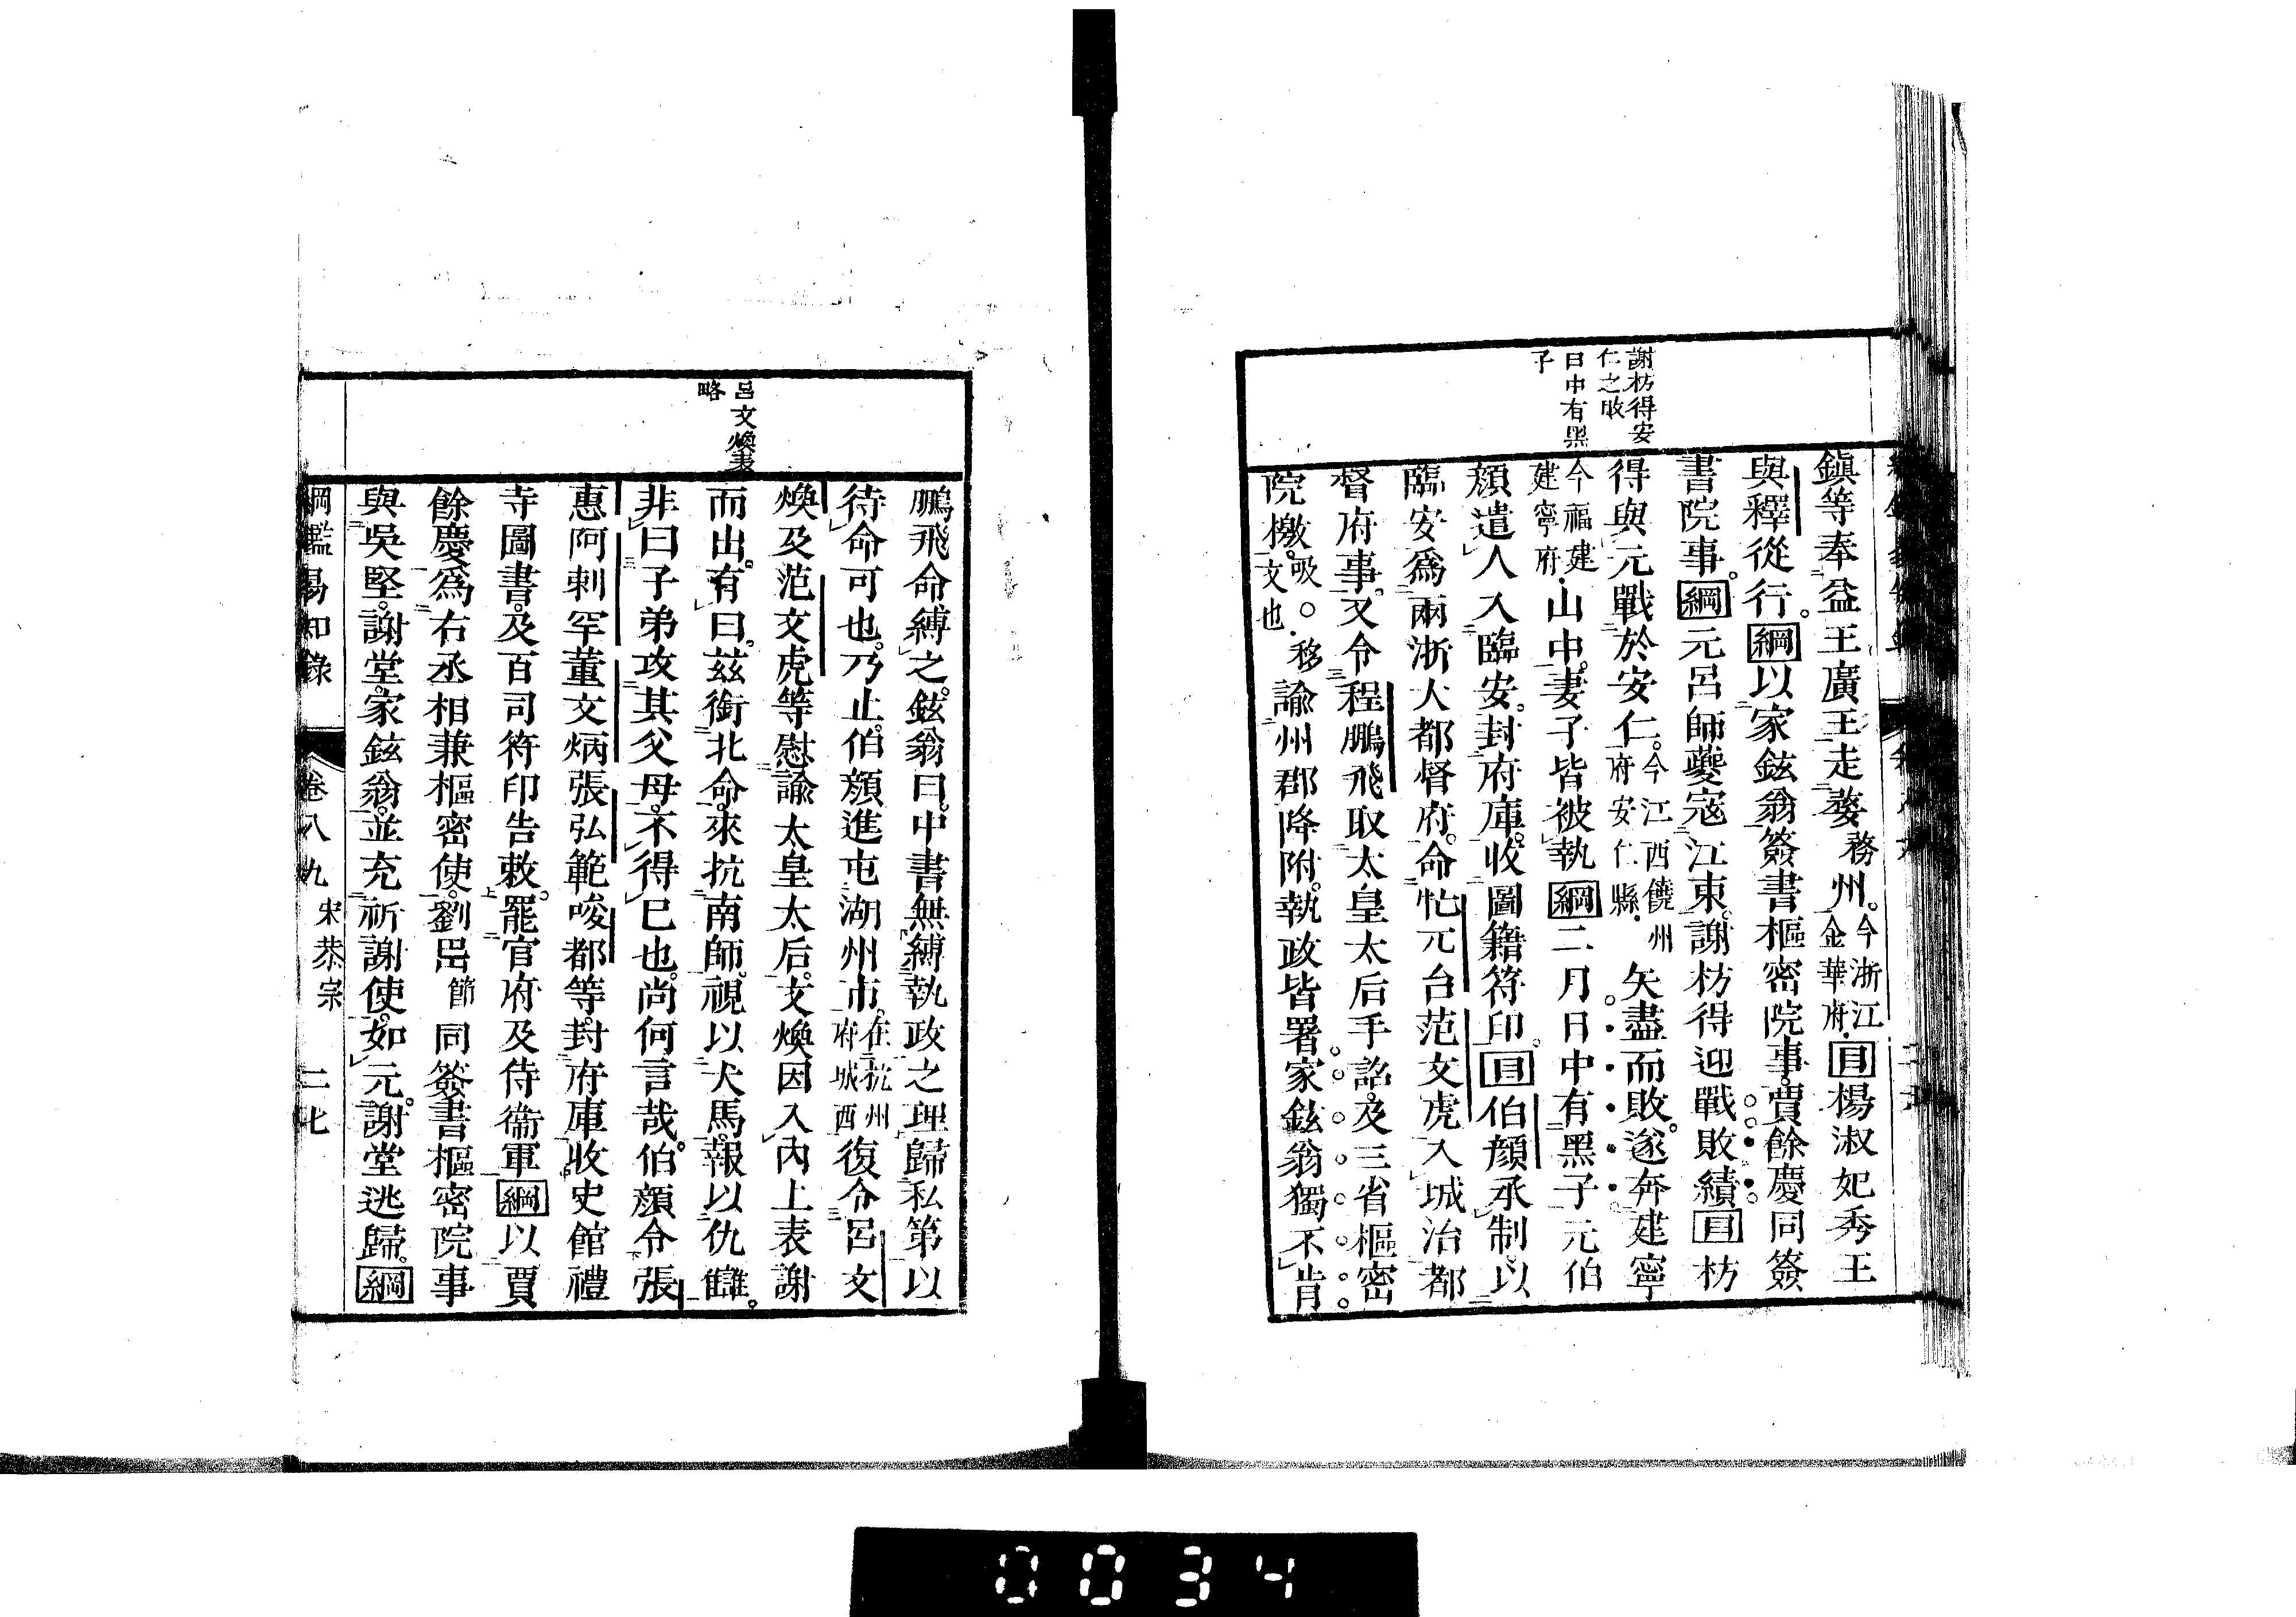 謝枋得安
仁之敗
日中有黑
子
鎭等奉益王廣王走婺務州。今浙江金華府。目楊淑妃秀王
與釋從行。綱以家鉉翁簽書樞密院事。賈餘慶同簽
書院事。綱元呂師夔寇江東。謝枋得迎戰敗績目枋
得與元戰於安仁。今江西饒州府安仁縣。矢盡而敗。遂奔建寧
今福建建寧府。山中。妻子皆被執綱二月日中有黑子元伯
顏遣人入臨安。封府庫。收圖籍符印。目伯顏承制。以
臨安爲兩浙大都督府。命忙兀台范文虎入城治都
督府事。又令程鵬飛取太皇太后手詔。及三省樞密
院檄。吸。移文也。諭州郡降附。執政皆署。家鉉翁獨不肯
呂文煥表
略
鵬飛命縛之。鉉翁曰。中書無縛執政之理歸私第以
待命可也。乃止。伯顏進屯湖州市。在杭州府城西復令呂文
煥及范文虎等慰諭太皇太后。文煥因入內上表謝
而出。有曰。茲銜北命。來抗南師。視以犬馬。報以仇讎。
非曰子弟攻其父母。不得已也。尚何言哉。伯顏令張
惠阿剌罕董文炳張弘範唆都等。封府庫。收史館禮
寺圖書。及百司符印告敕。罷官府及侍衞軍綱以賈
餘慶爲右丞相兼樞密使。劉岊節同簽書樞密院事
與吳堅。謝堂。家鉉翁。並充祈謝使。如元。謝堂逃歸。綱
綱鑑易知錄 卷八九 宋恭宗 二七